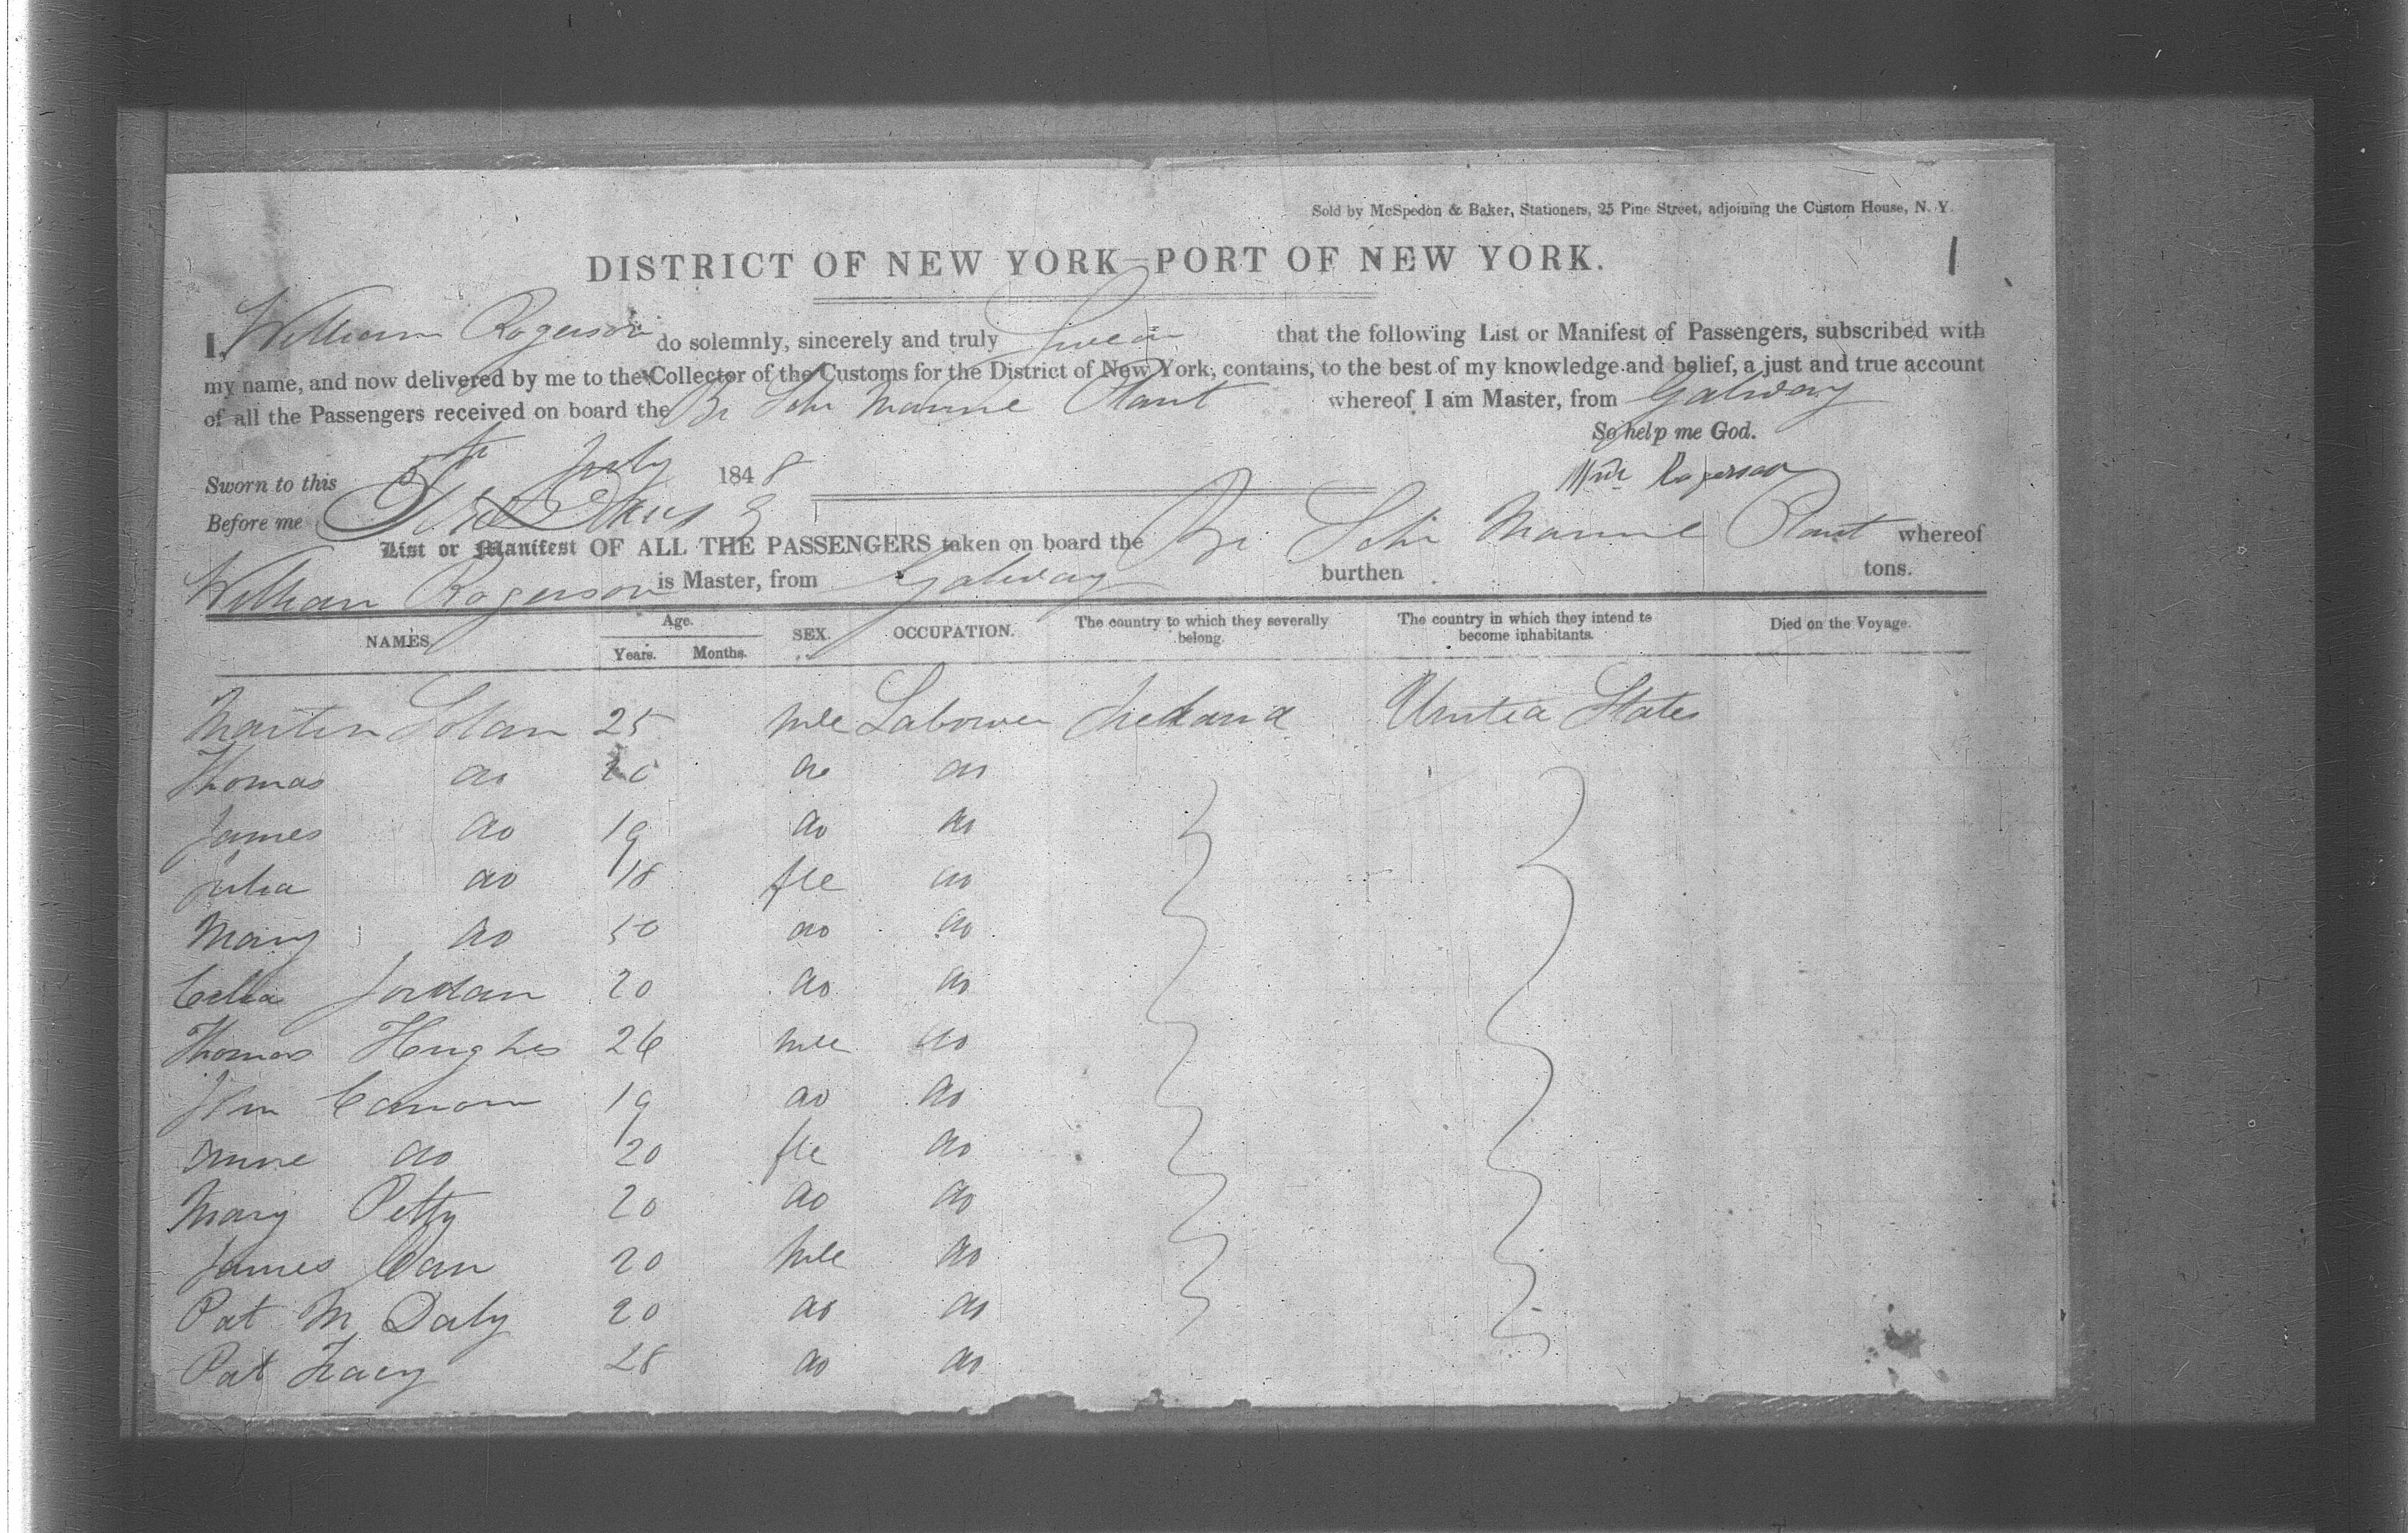 Sold by McSpedon & Baker, Stationers, 25 Pine Street, adjoining the Custom House, N. Y.
1
DISTRICT OF NEW YORK—PORT OF NEW YORK.
I, William Rogerson do solemnly, sincerely and truly Swear that the following List or Manifest of Passengers, subscribed with
my name, and now delivered by me to the Collector of the Customs for the District of New York, contains, to the best of my knowledge and belief, a just and true account
of all the Passengers received on board the Br Schr Marine Plant whereof I am Master, from Galway
So help me God.
Sworn to this 5th July 1848 Wm Rogerson
Before me
List or Manifest OF ALL THE PASSENGERS taken on board the Br Schr Marine Plant whereof
William Rogerson is Master, from Galway burthen tons.
NAMES. Age. Years. Months. SEX. OCCUPATION. The country to which they severally belong. The country in which they intend to become inhabitants. Died on the Voyage.
Martin Solan 25 mle Labourer Ireland United States
Thomas do 20 do do
James do 19 do do
Julia do 18 fle do
Mary do 50 do do
Celia Jordan 20 do do
Thomas Hughes 26 mle do
Wm Canon 19 do do
Anne do 20 fle do
Mary Petty 20 do do
James Can 20 mle do
Pat M Daly 20 do do
Pat Tracy 28 do do